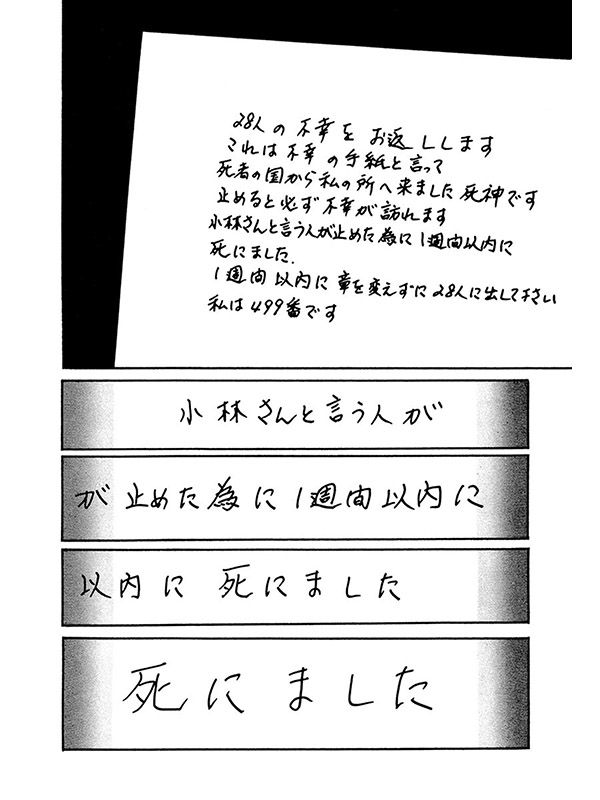 28人の不幸を お返ししします
これは不幸の手紙と言って
死者の国から私の所へ来ました 死神です
止めると必ず不幸が訪れます
小林さんと言う人が止めた為に1週間以内に
死にました.
1週間以内に章を変えずに28人に出して下さい
私は499番です
小林さんと言う人が
が止めた為に1週間以内に
以内に 死にました
死にました